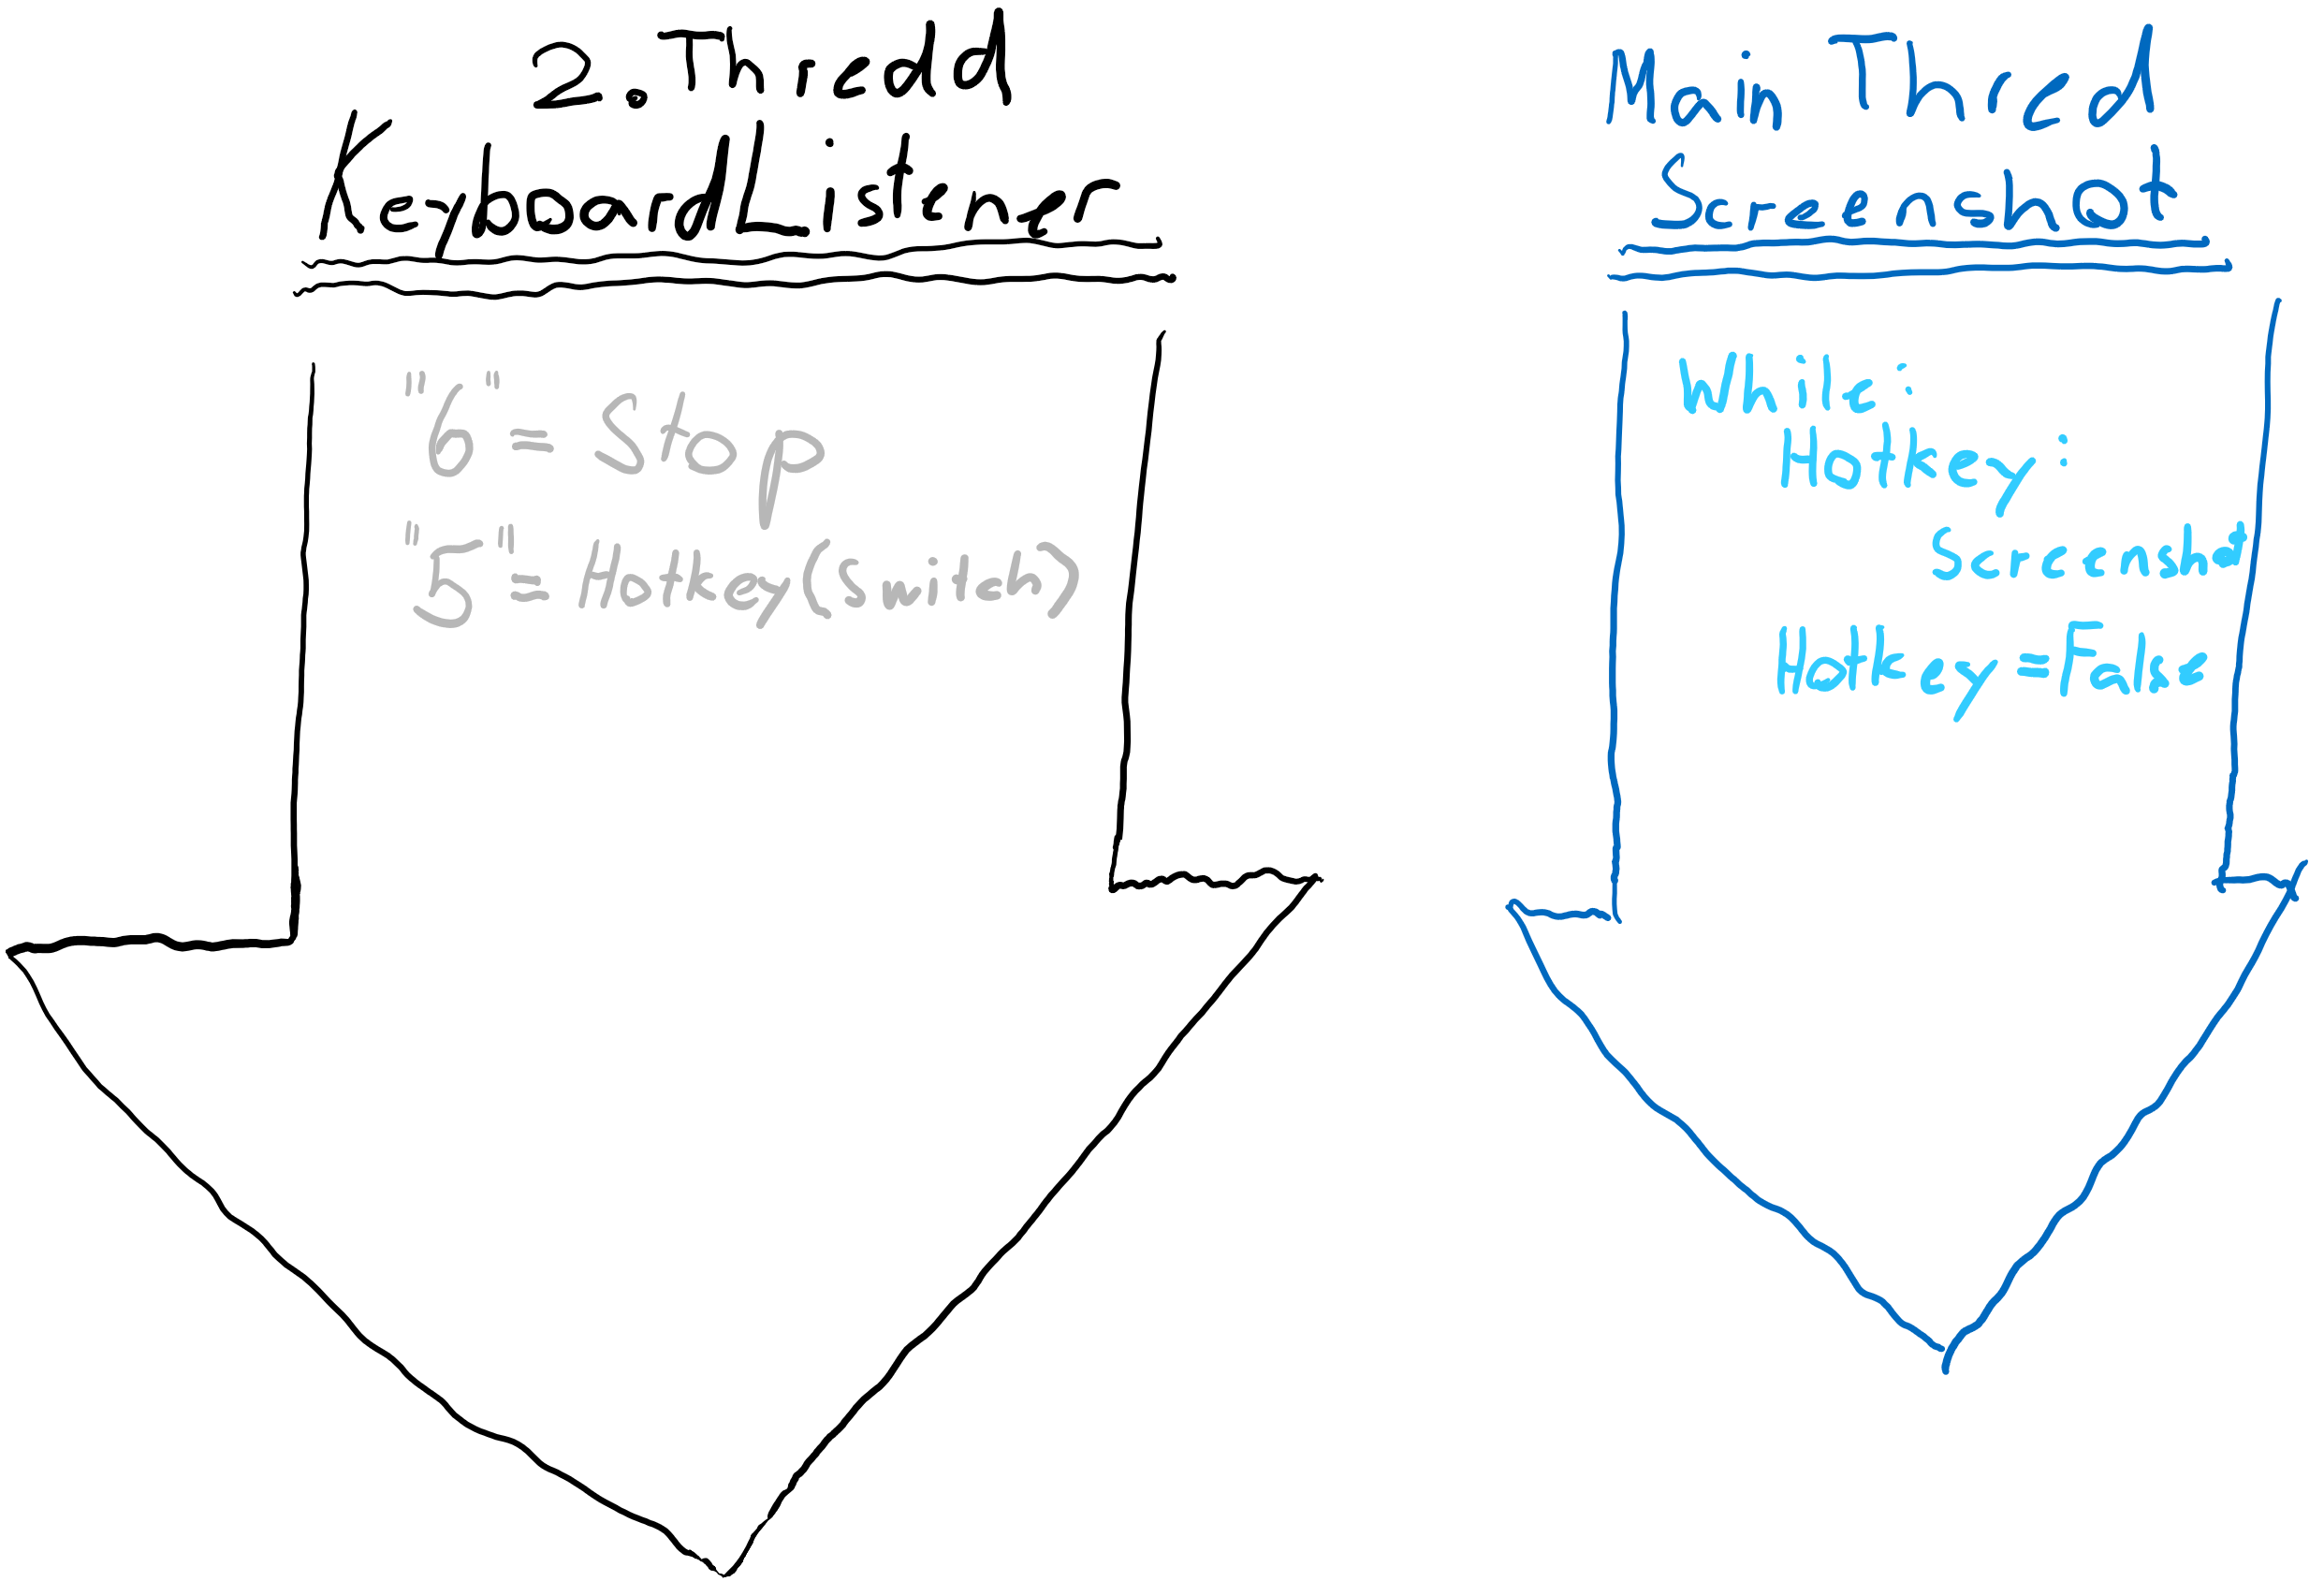 2. Thread
Key-boardListener
"6" = Stop
"5" = Hotkey(switch)
Main Thred
Screenshot
While:
Hotkey:
Screenshot
Hotkey = False